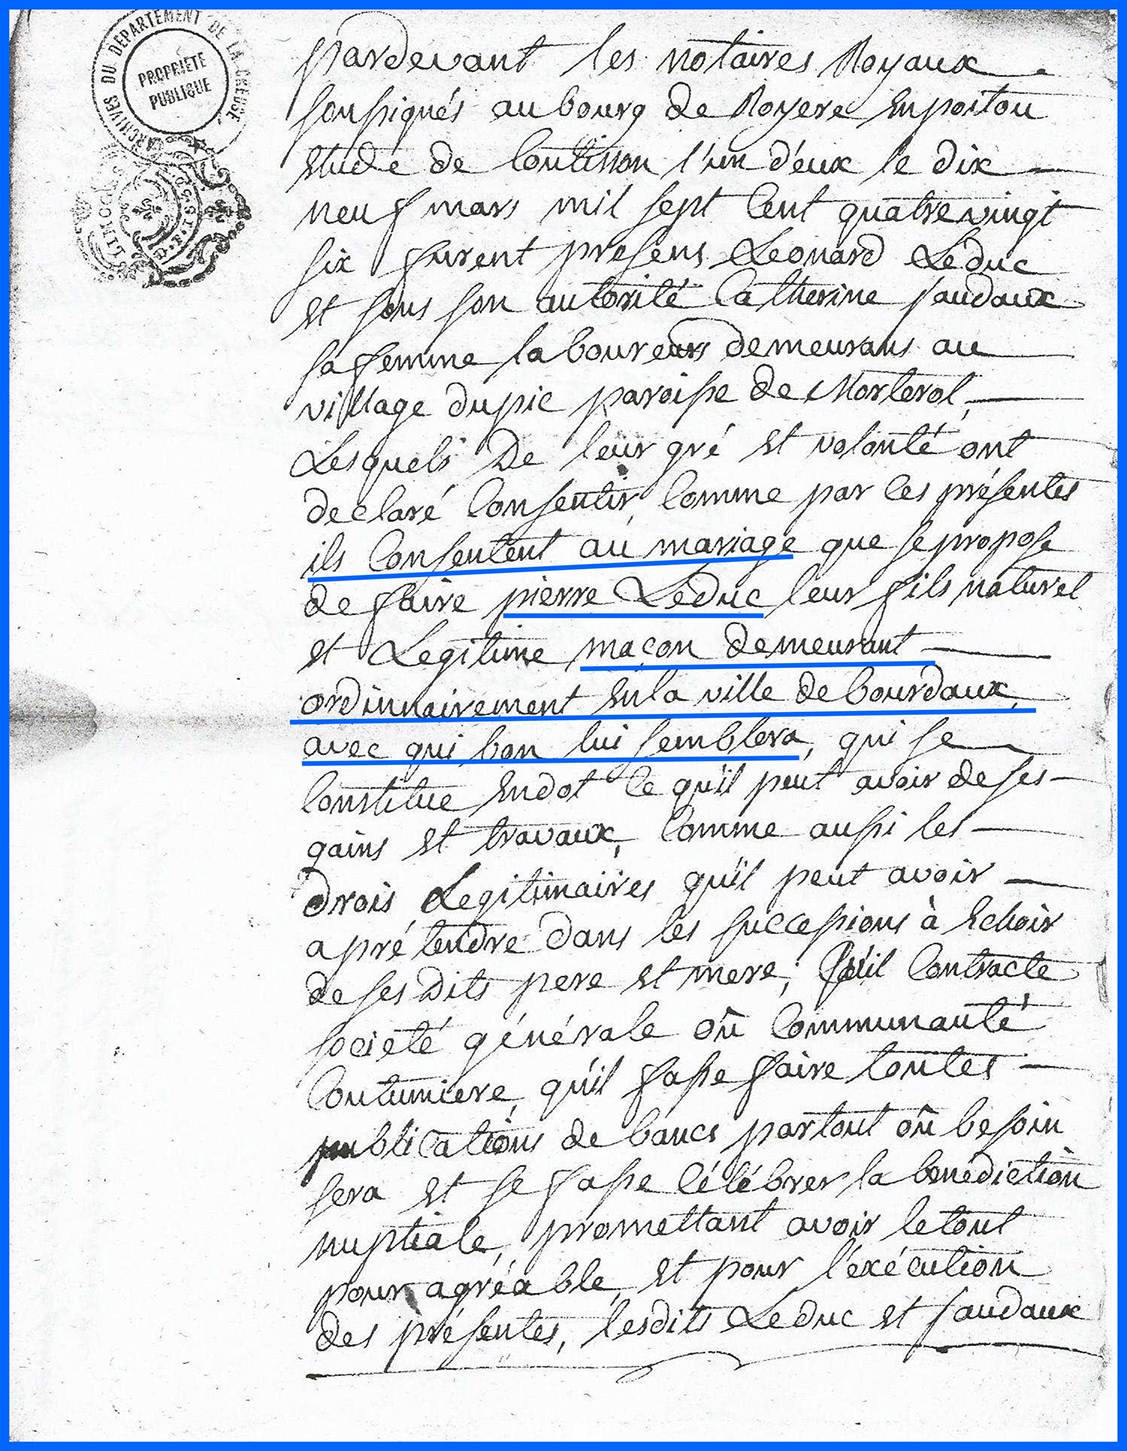 ARCHIVES DU DEPARTEMENT DE LA CREUSE
PROPRIETE
PUBLIQUE
pardevant les notaires Royaux
soussignés au bourg de Royere en poitou
etude de Coutisson l'un d'eux le dix
neuf mars mil sept cent quatre vingt
six furent presens Leonard Leduc
et sous son autorité Catherine faudaux
sa femme laboureurs demeurans au
village du pic paroisse de Morterol,
Lesquels De leur gré et volonté ont
declaré consentir, comme par ces présentes
ils consentent au mariage que se propose
de faire pierre Leduc leur fils naturel
et Legitime maçon demeurant
ordinnairement en la ville de bourdaux,
avec qui bon lui semblera, qui se
constitue en dot ce qu'il peut avoir de ses
gains et travaux, comme aussi les
drois Legitimaires qu'il peut avoir
a prétendre dans les successions à echoir
de ses dits pere et mere; qu'il contracte
societé générale où communauté
coutumiere, qu'il fasse faire toutes
publications de bancs partout où besoin
sera et se fasse célébrer la bénédiction
nuptiale, promettant avoir le tout
pour agréable, et pour l'exécution
des présentes, lesdits Leduc et faudaux